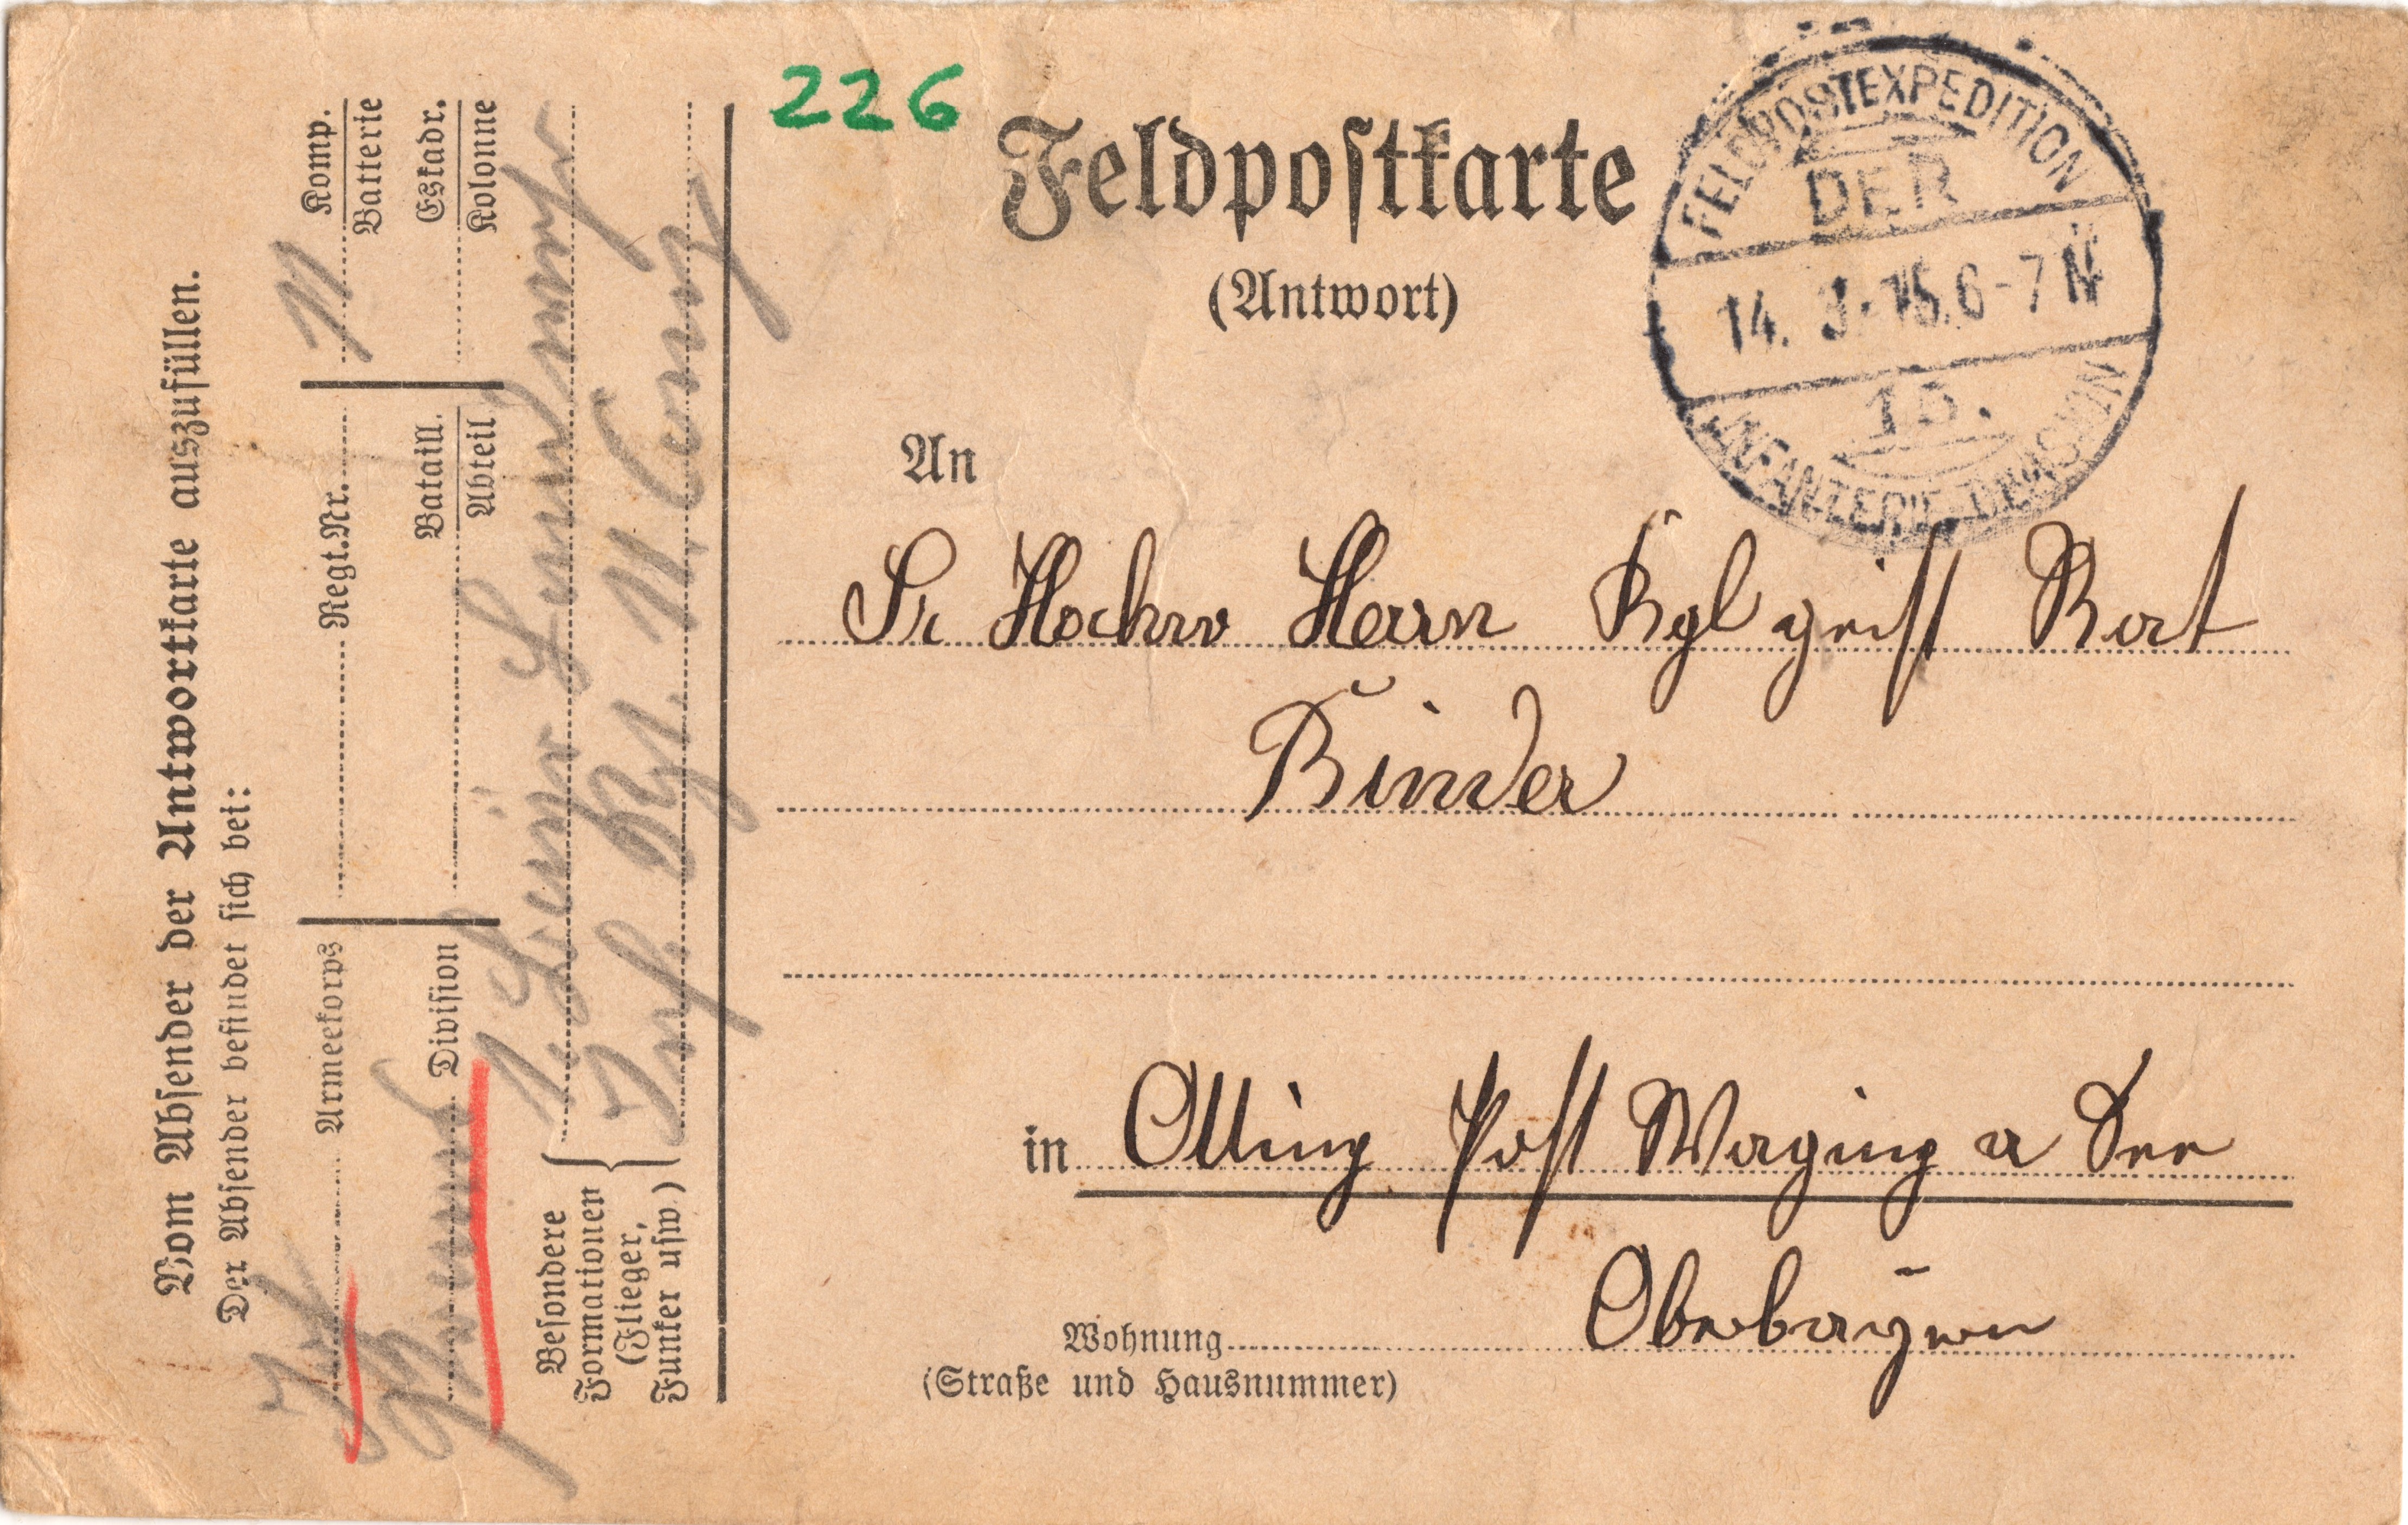 226
Feldpostkarte
(Antwort)
FELDPOSTEXPEDITION
DER
14. 3. 15. 6-7 N
INFANTERIE-DIVISION
An
Sr Hochw Herrn Kgl geistl Rat
Binder
in Otting Post Waging a See
Oberbayern
Wohnung
(Straße und Hausnummer)
Vom Absender der Antwortkarte auszufüllen.
Der Absender befindet sich bei:
Armeekorps Regt.Nr. 11 Komp.
Batterie
Division Bataill. Eskadr.
Abteil Kolonne
Besondere
Formationen
(Flieger,
Funker usw.)
Inf. Rgt. 11. Comp